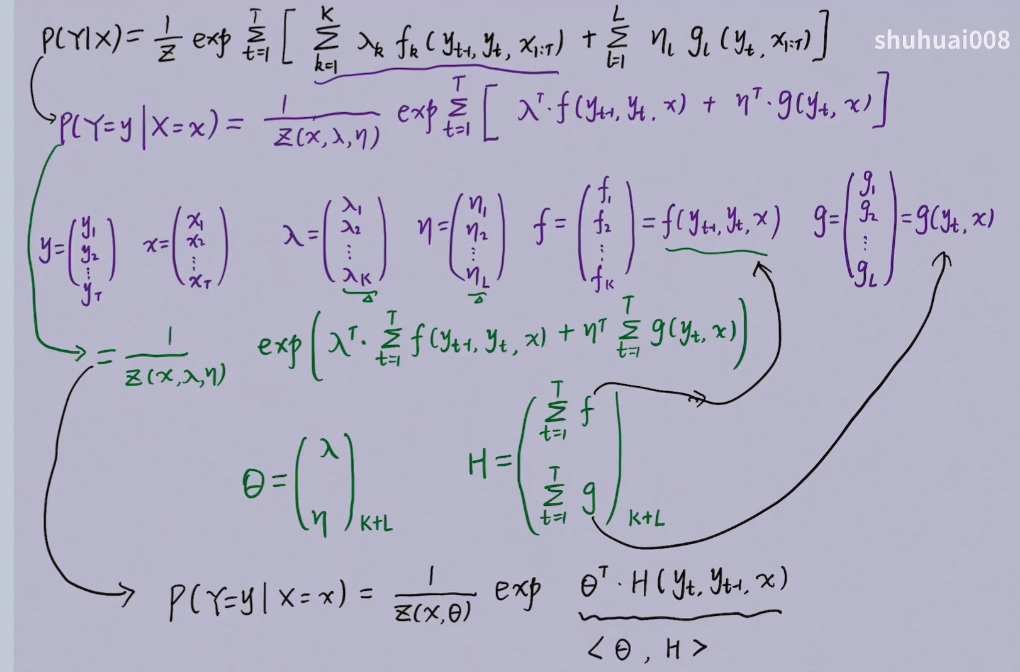 P(Y|X) = 1/Z exp ∑_{t=1}^{T} [ ∑_{k=1}^{K} λ_k f_k(y_{t-1}, y_t, x_{1:T}) + ∑_{l=1}^{L} η_l g_l(y_t, x_{1:T}) ]
shuhuai008
P(Y=y|X=x) = 1/Z(x,λ,η) exp ∑_{t=1}^{T} [ λ^T·f(y_{t-1}, y_t, x) + η^T·g(y_t, x) ]
y = (y_1 y_2 ⋮ y_T) x = (x_1 x_2 ⋮ x_T) λ = (λ_1 λ_2 ⋮ λ_K) η = (η_1 η_2 ⋮ η_L) f = (f_1 f_2 ⋮ f_K) = f(y_{t-1}, y_t, x) g = (g_1 g_2 ⋮ g_L) = g(y_t, x)
= 1/Z(x,λ,η) exp( λ^T·∑_{t=1}^{T} f(y_{t-1}, y_t, x) + η^T ∑_{t=1}^{T} g(y_t, x) )
θ = (λ η)_{K+L} H = (∑_{t=1}^{T} f ∑_{t=1}^{T} g)_{K+L}
P(Y=y|X=x) = 1/Z(x,θ) exp θ^T·H(y_t, y_{t-1}, x)
<θ, H>